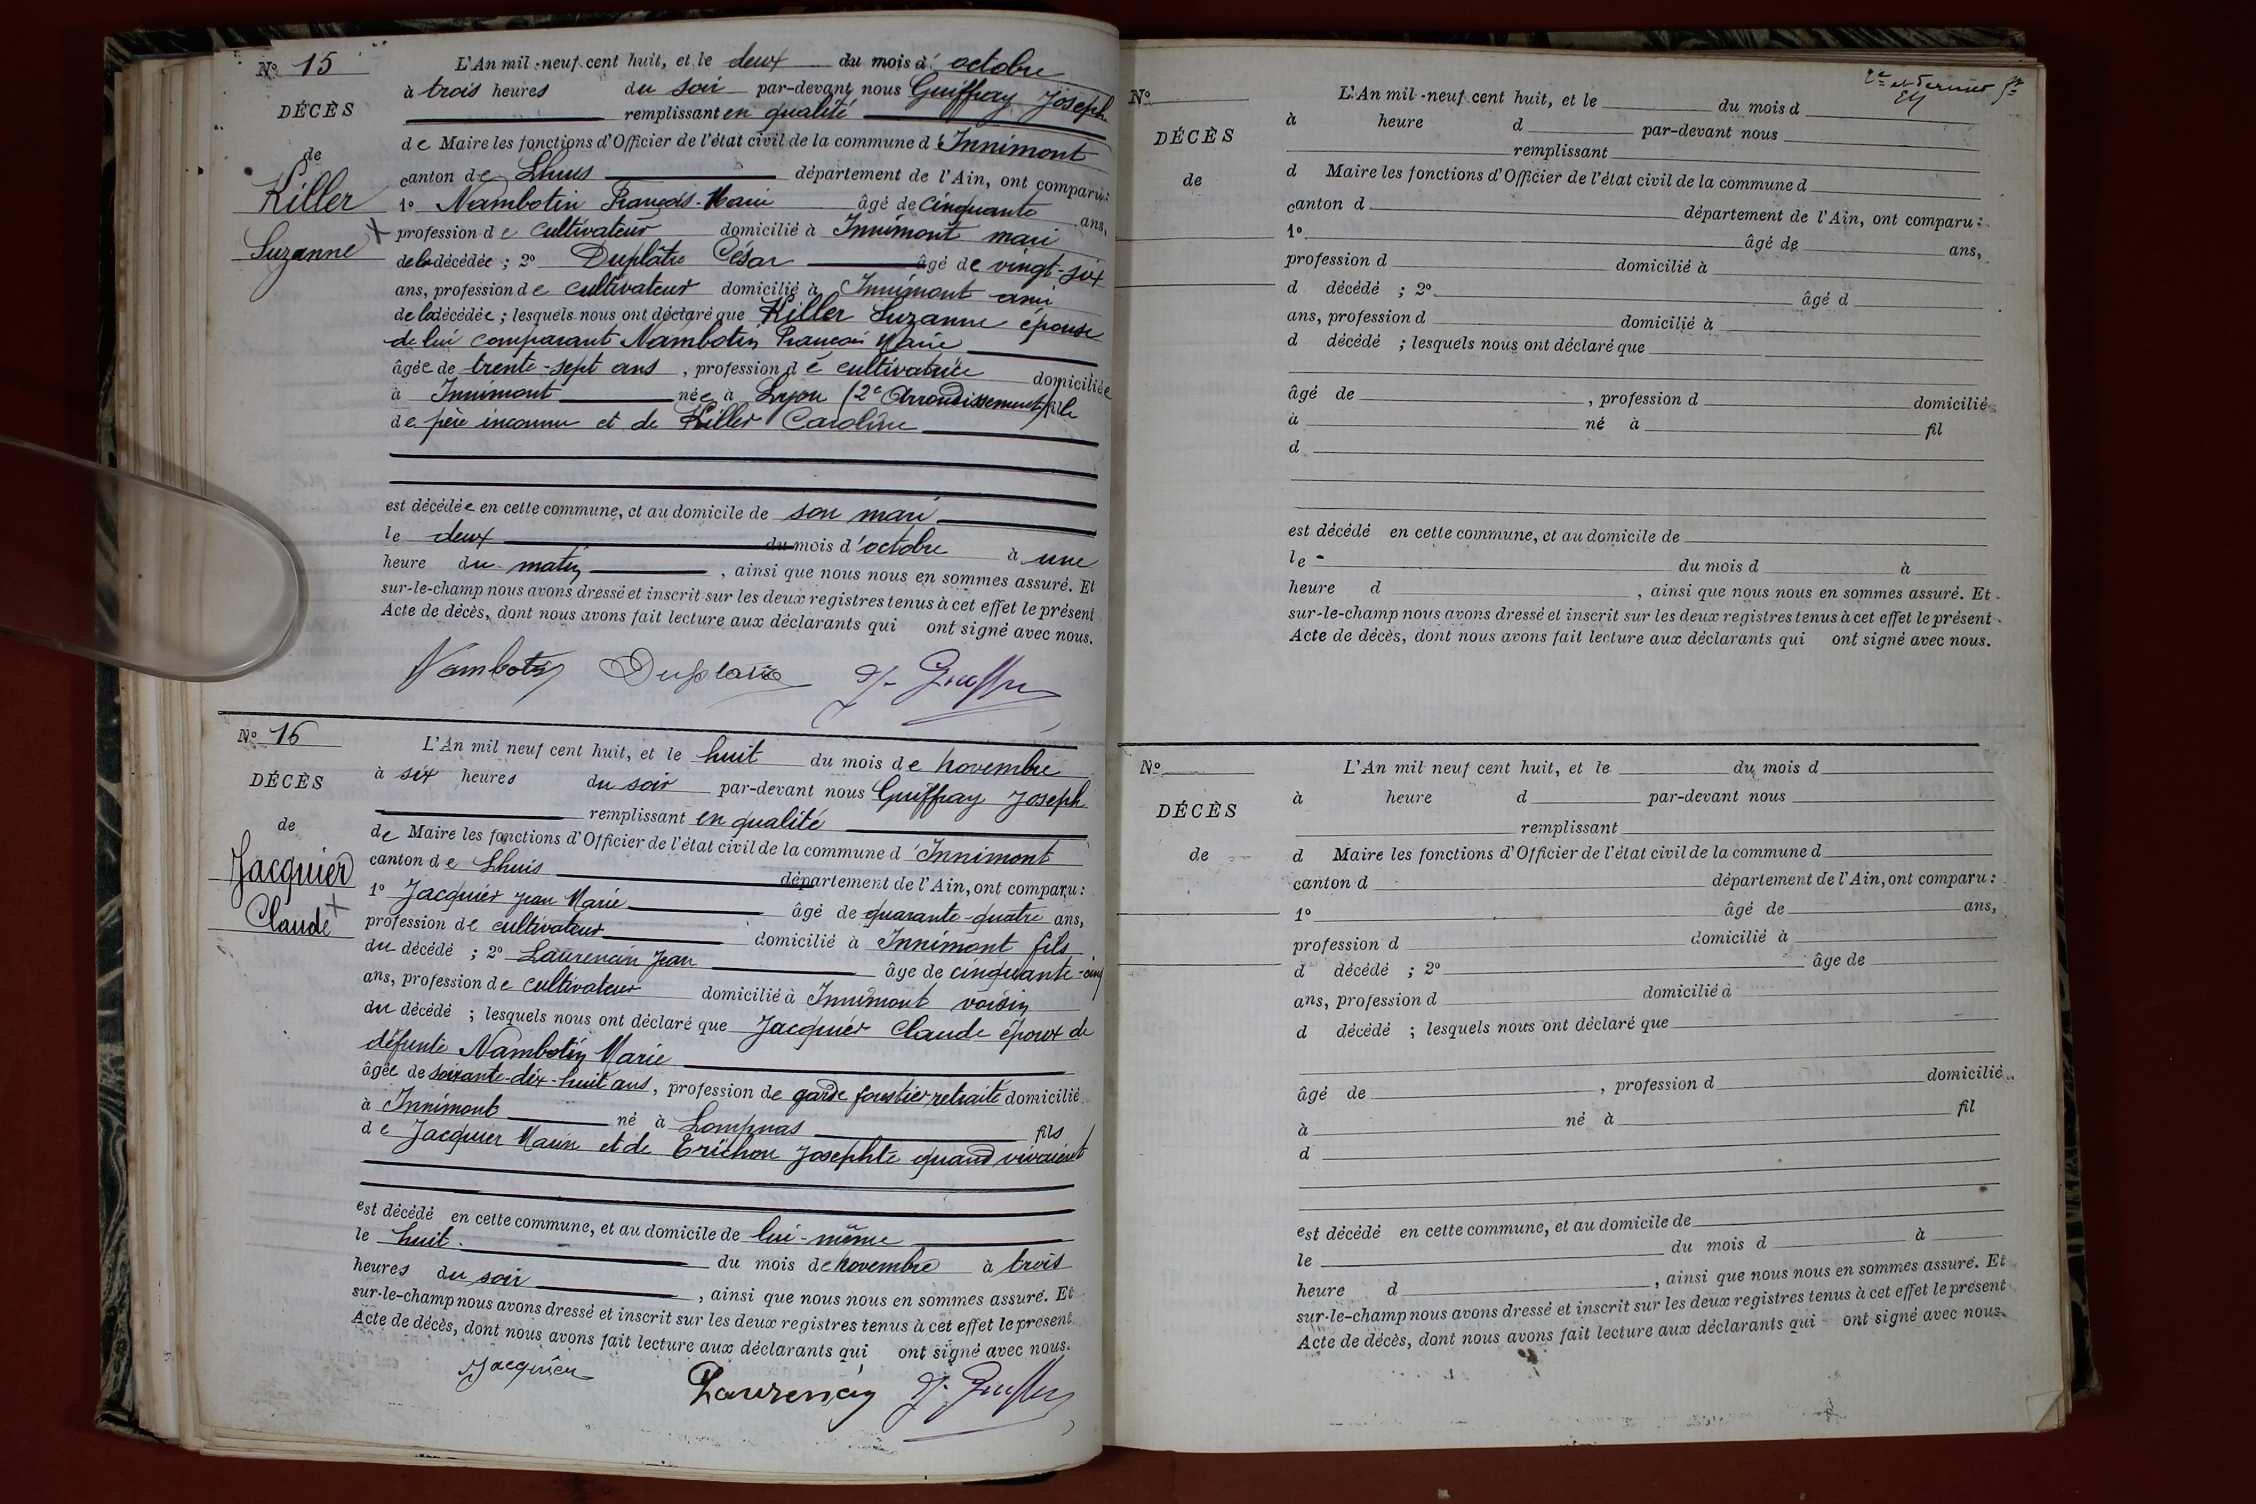 Nº 15
DÉCÈS
de
Killer
Suzanne
L'An mil-neuf cent huit, et le deux du mois d'octobre
à trois heures du soir par-devant nous Guiffray Joseph
remplissant en qualité
de Maire les fonctions d'Officier de l'état civil de la commune d'Innimont
canton de Lhuis département de l'Ain, ont comparu:
1º Nambotin François-Marie âgé de cinquante ans,
profession de cultivateur domicilié à Innimont mari
de la décédée ; 2º Duplâtre César âgé de vingt-six
ans, profession de cultivateur domicilié à Innimont ami
de la décédée ; lesquels nous ont déclaré que Killer Suzanne épouse
de lui comparant Nambotin François Marie
âgée de trente-sept ans , profession de cultivatrice domiciliée
à Innimont née à Lyon (2e Arrondissement) fille
de père inconnu et de Killer Caroline
est décédée en cette commune, et au domicile de son mari
le deux du mois d'octobre à une
heure du matin , ainsi que nous nous en sommes assuré. Et
sur-le-champ nous avons dressé et inscrit sur les deux registres tenus à cet effet le présent
Acte de décès, dont nous avons fait lecture aux déclarants qui ont signé avec nous.
Nambotin Duplatre J. Guiffray
Nº 16
DÉCÈS
de
Jacquier
Claude
L'An mil neuf cent huit, et le huit du mois de novembre
à six heures du soir par-devant nous Guiffray Joseph
remplissant en qualité
de Maire les fonctions d'Officier de l'état civil de la commune d'Innimont
canton de Lhuis département de l'Ain, ont comparu :
1º Jacquier Jean Marie âgé de quarante-quatre ans,
profession de cultivateur domicilié à Innimont fils
du décédé ; 2º Laurencin Jean âge de cinquante-cinq
ans, profession de cultivateur domicilié à Innimont voisin
du décédé ; lesquels nous ont déclaré que Jacquier Claude époux de
défunte Nambotin Marie
âgée de soixante-dix-huit ans , profession de garde forestier retraité domicilié
à Innimont né à Lompnas fils
de Jacquier Marin et de Trichon Josephte quand vivaient
est décédé en cette commune, et au domicile de lui-même
le huit. du mois de novembre à trois
heures du soir , ainsi que nous nous en sommes assuré. Et
sur-le-champ nous avons dressé et inscrit sur les deux registres tenus à cet effet le présent
Acte de décès, dont nous avons fait lecture aux déclarants qui ont signé avec nous.
Jacquier Laurencin J. Guiffray
2e et dernier
Nº
DÉCÈS
de
L'An mil-neuf cent huit, et le du mois d
à heure d par-devant nous
remplissant
d Maire les fonctions d'Officier de l'état civil de la commune d
canton d département de l'Ain, ont comparu :
1º âgé de ans,
profession d domicilié à
d décédé ; 2º âgé d
ans, profession d domicilié à
d décédé ; lesquels nous ont déclaré que
âgé de , profession d domicilié
à né à fil
d
est décédé en cette commune, et au domicile de
le du mois d à
heure d , ainsi que nous nous en sommes assuré. Et
sur-le-champ nous avons dressé et inscrit sur les deux registres tenus à cet effet le présent
Acte de décès, dont nous avons fait lecture aux déclarants qui ont signé avec nous.
Nº
DÉCÈS
de
L'An mil neuf cent huit, et le du mois d
à heure d par-devant nous
remplissant
d Maire les fonctions d'Officier de l'état civil de la commune d
canton d département de l'Ain, ont comparu :
1º âgé de ans,
profession d domicilié à
d décédé ; 2º âge de
ans, profession d domicilié à
d décédé ; lesquels nous ont déclaré que
âgé de , profession d domicilié
à né à fil
d
est décédé en cette commune, et au domicile de
le du mois d à
heure d , ainsi que nous nous en sommes assuré. Et
sur-le-champ nous avons dressé et inscrit sur les deux registres tenus à cet effet le présent
Acte de décès, dont nous avons fait lecture aux déclarants qui ont signé avec nous.